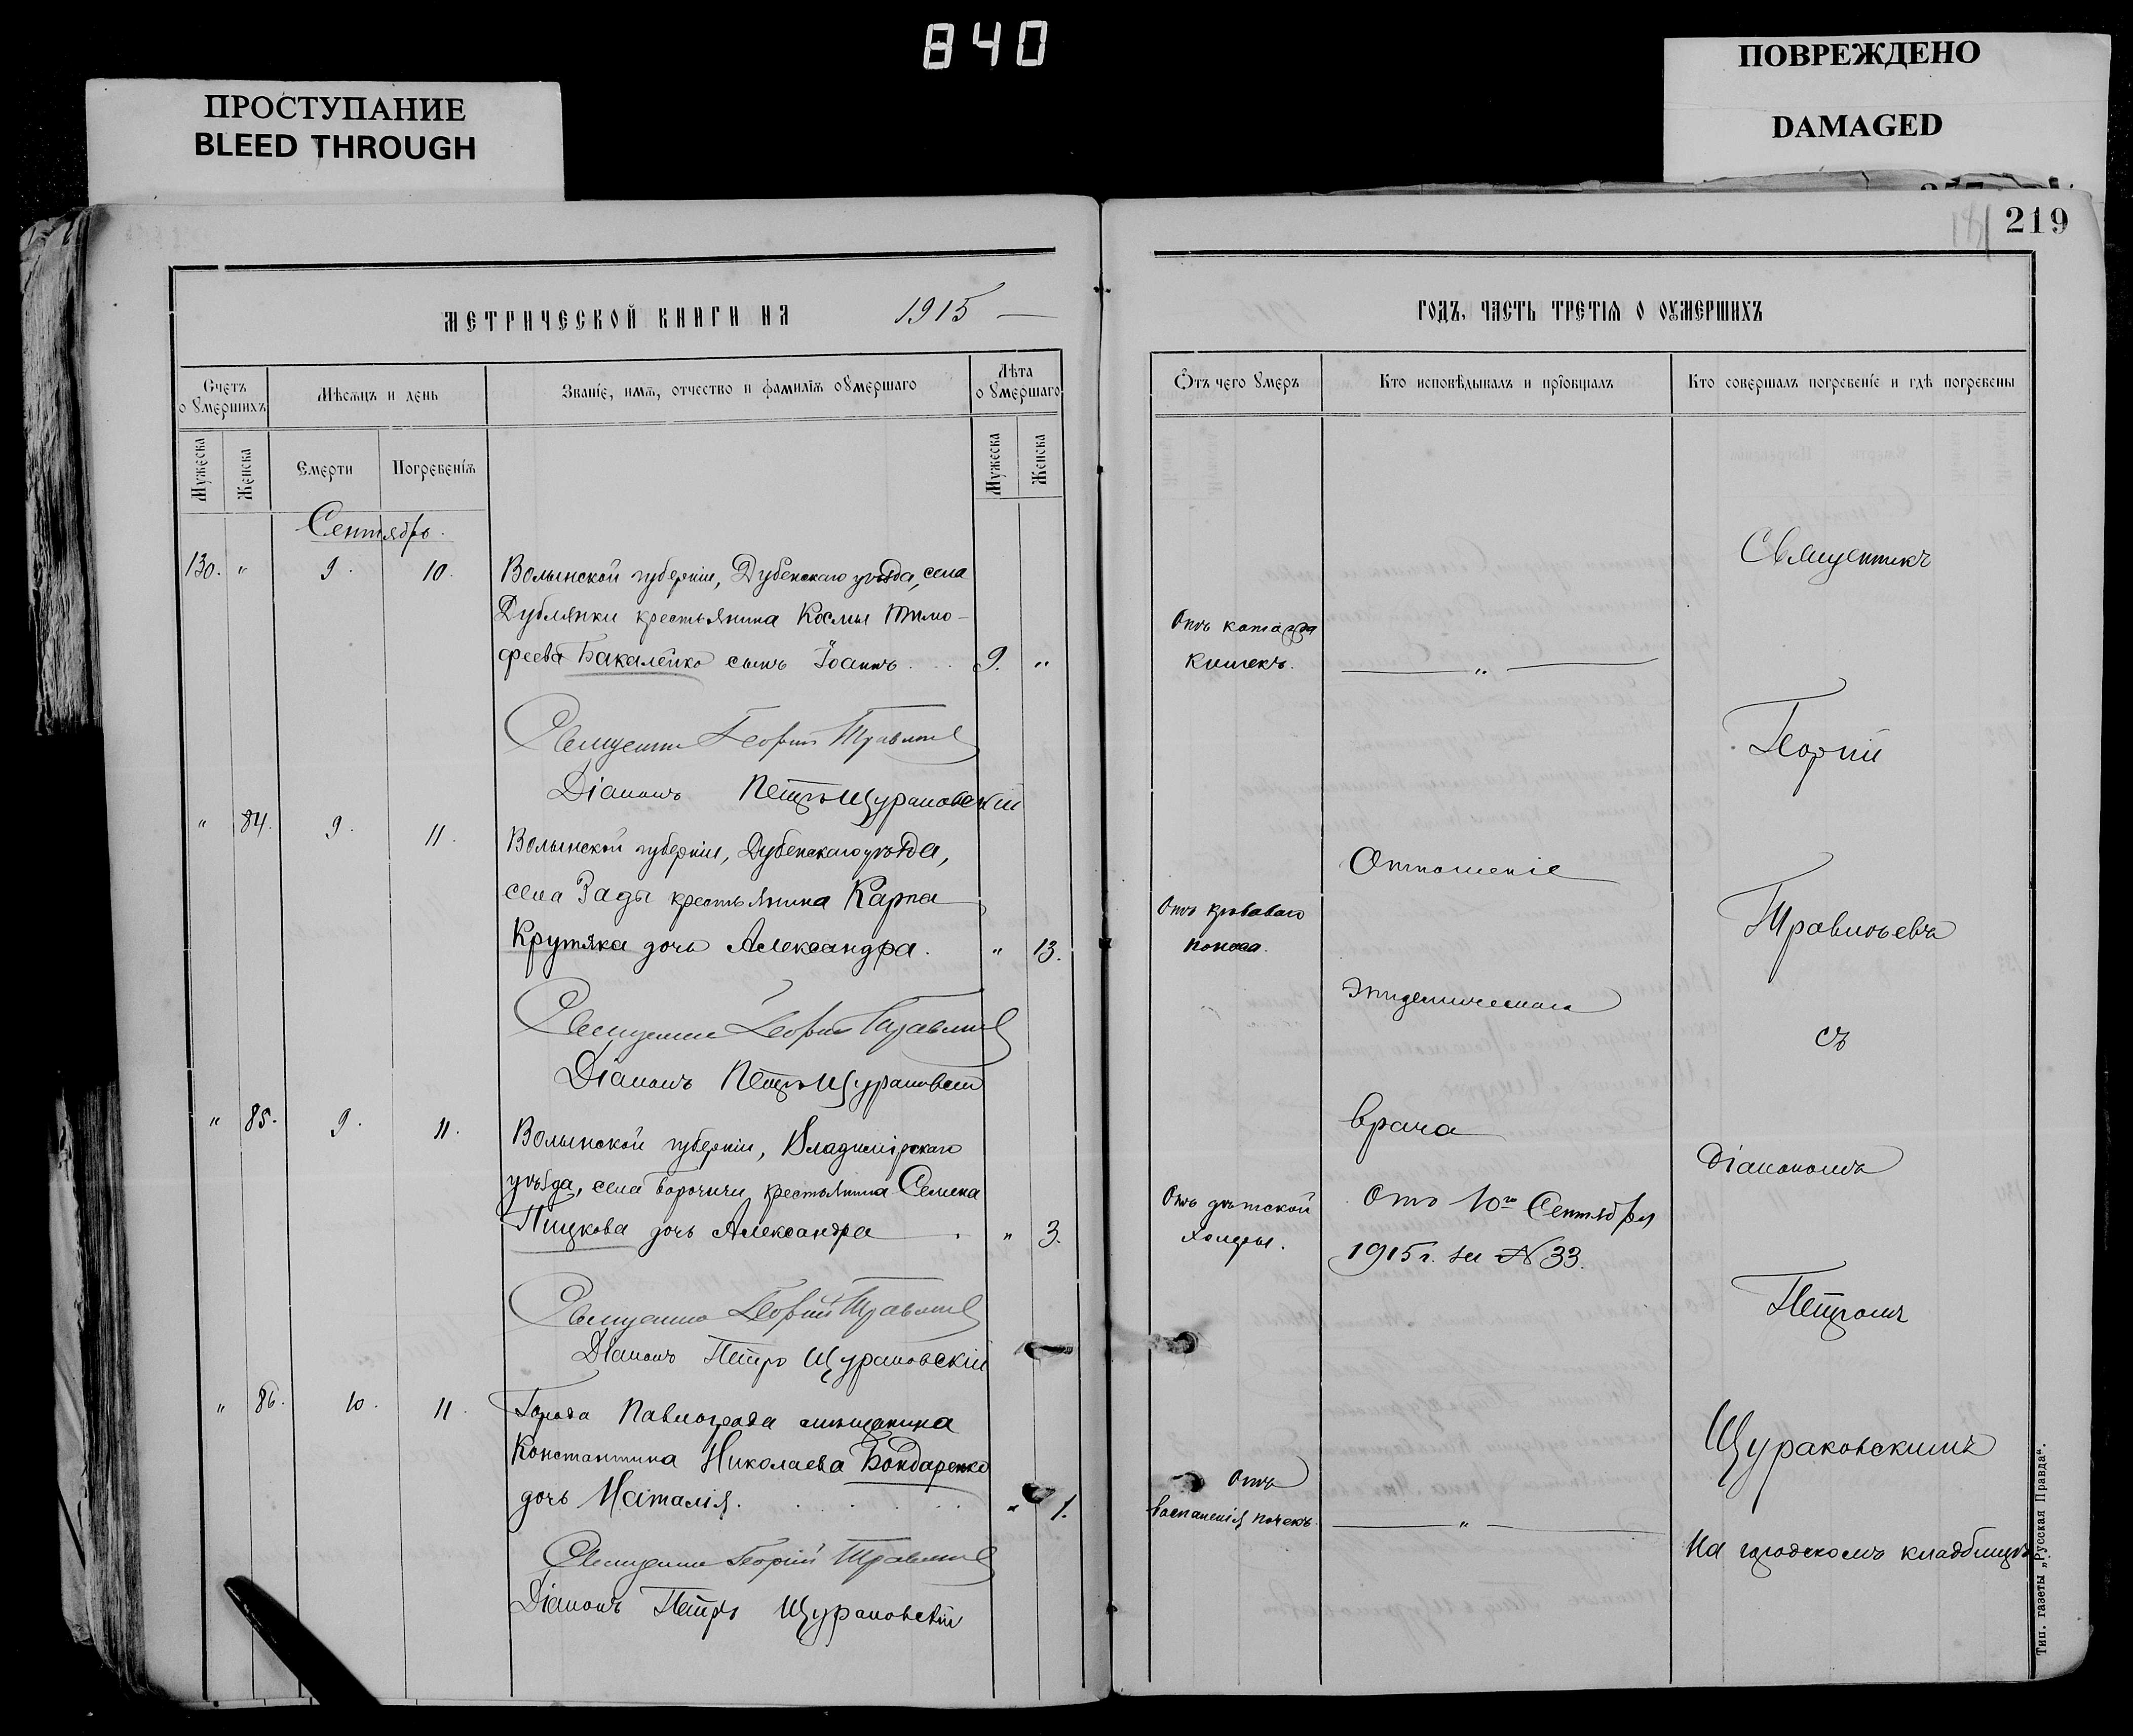 840
ПРОСТУПАНИЕ
BLEED THROUGH
ПОВРЕЖДЕНО
DAMAGED
219
МЕТРИЧЕСКОЙ КНИГИ НА 1915
Счетъ о умершихъ
Мѣсяцъ и день
Званіе, имя, отчество и фамилія умершаго
Лѣта о умершаго
Мужеска
Женска
Смерти
Погребенія
Мужеска
Женска
Сентябрь.
130. " 9. 10. Волынской губерніи, Дубенскаго уѣзда, села
Дублянки крестьянина Космы Тимо-
феева Бакалейко сынъ Іоаннъ. 9. "
Священникъ Георгій
Діаконъ Петръ Щураковскій
" 84. 9. 11. Волынской губерніи, Дубенскаго уѣзда,
села крестьянина Карпа
Крутяка дочь Александра. " 13.
Священникъ Георгій
Діаконъ Петръ Щураковскій
" 85. 9. 11. Волынской губерніи, Владимірскаго
уѣзда, села крестьянина Семена
дочь Александра " 3.
Священникъ Георгій
Діаконъ Петръ Щураковскій
" 86. 10. 11. Города Павлограда мѣщанина
Константина Николаева Бондаренко
дочь Наталія. " 1.
Священникъ Георгій
Діаконъ Петръ Щураковскій
ГОДЪ, ЧАСТЬ ТРЕТІЯ О УМЕРШИХЪ
Отъ чего умеръ
Кто исповѣдывалъ и пріобщалъ
Кто совершалъ погребеніе и гдѣ погребены
Отъ катарра
кишекъ.
"
Отъ кроваваго
поноса.
Отъ дѣтской
холеры.
Отъ
воспаленія почекъ.
"
Отношеніе
Эпидемическаго
врача
отъ 10го Сентября
1915 г. за № 33.
Священникъ
Георгій
съ
діакономъ
Петромъ
Щураковскимъ
На городскомъ кладбищѣ
Тип. газеты „Русская Правда“.